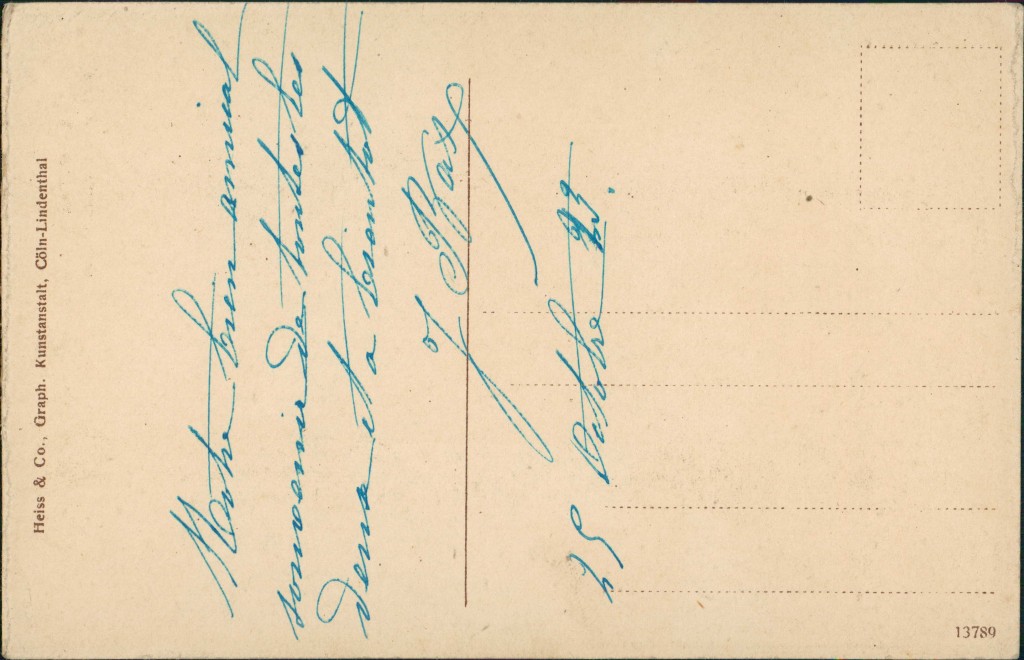 Heiss & Co., Graph. Kunstanstalt, Cöln-Lindenthal
Notre bien amical
souvenir de toutes les
deux et a bientot
J.
25 Octobre 23.
13789